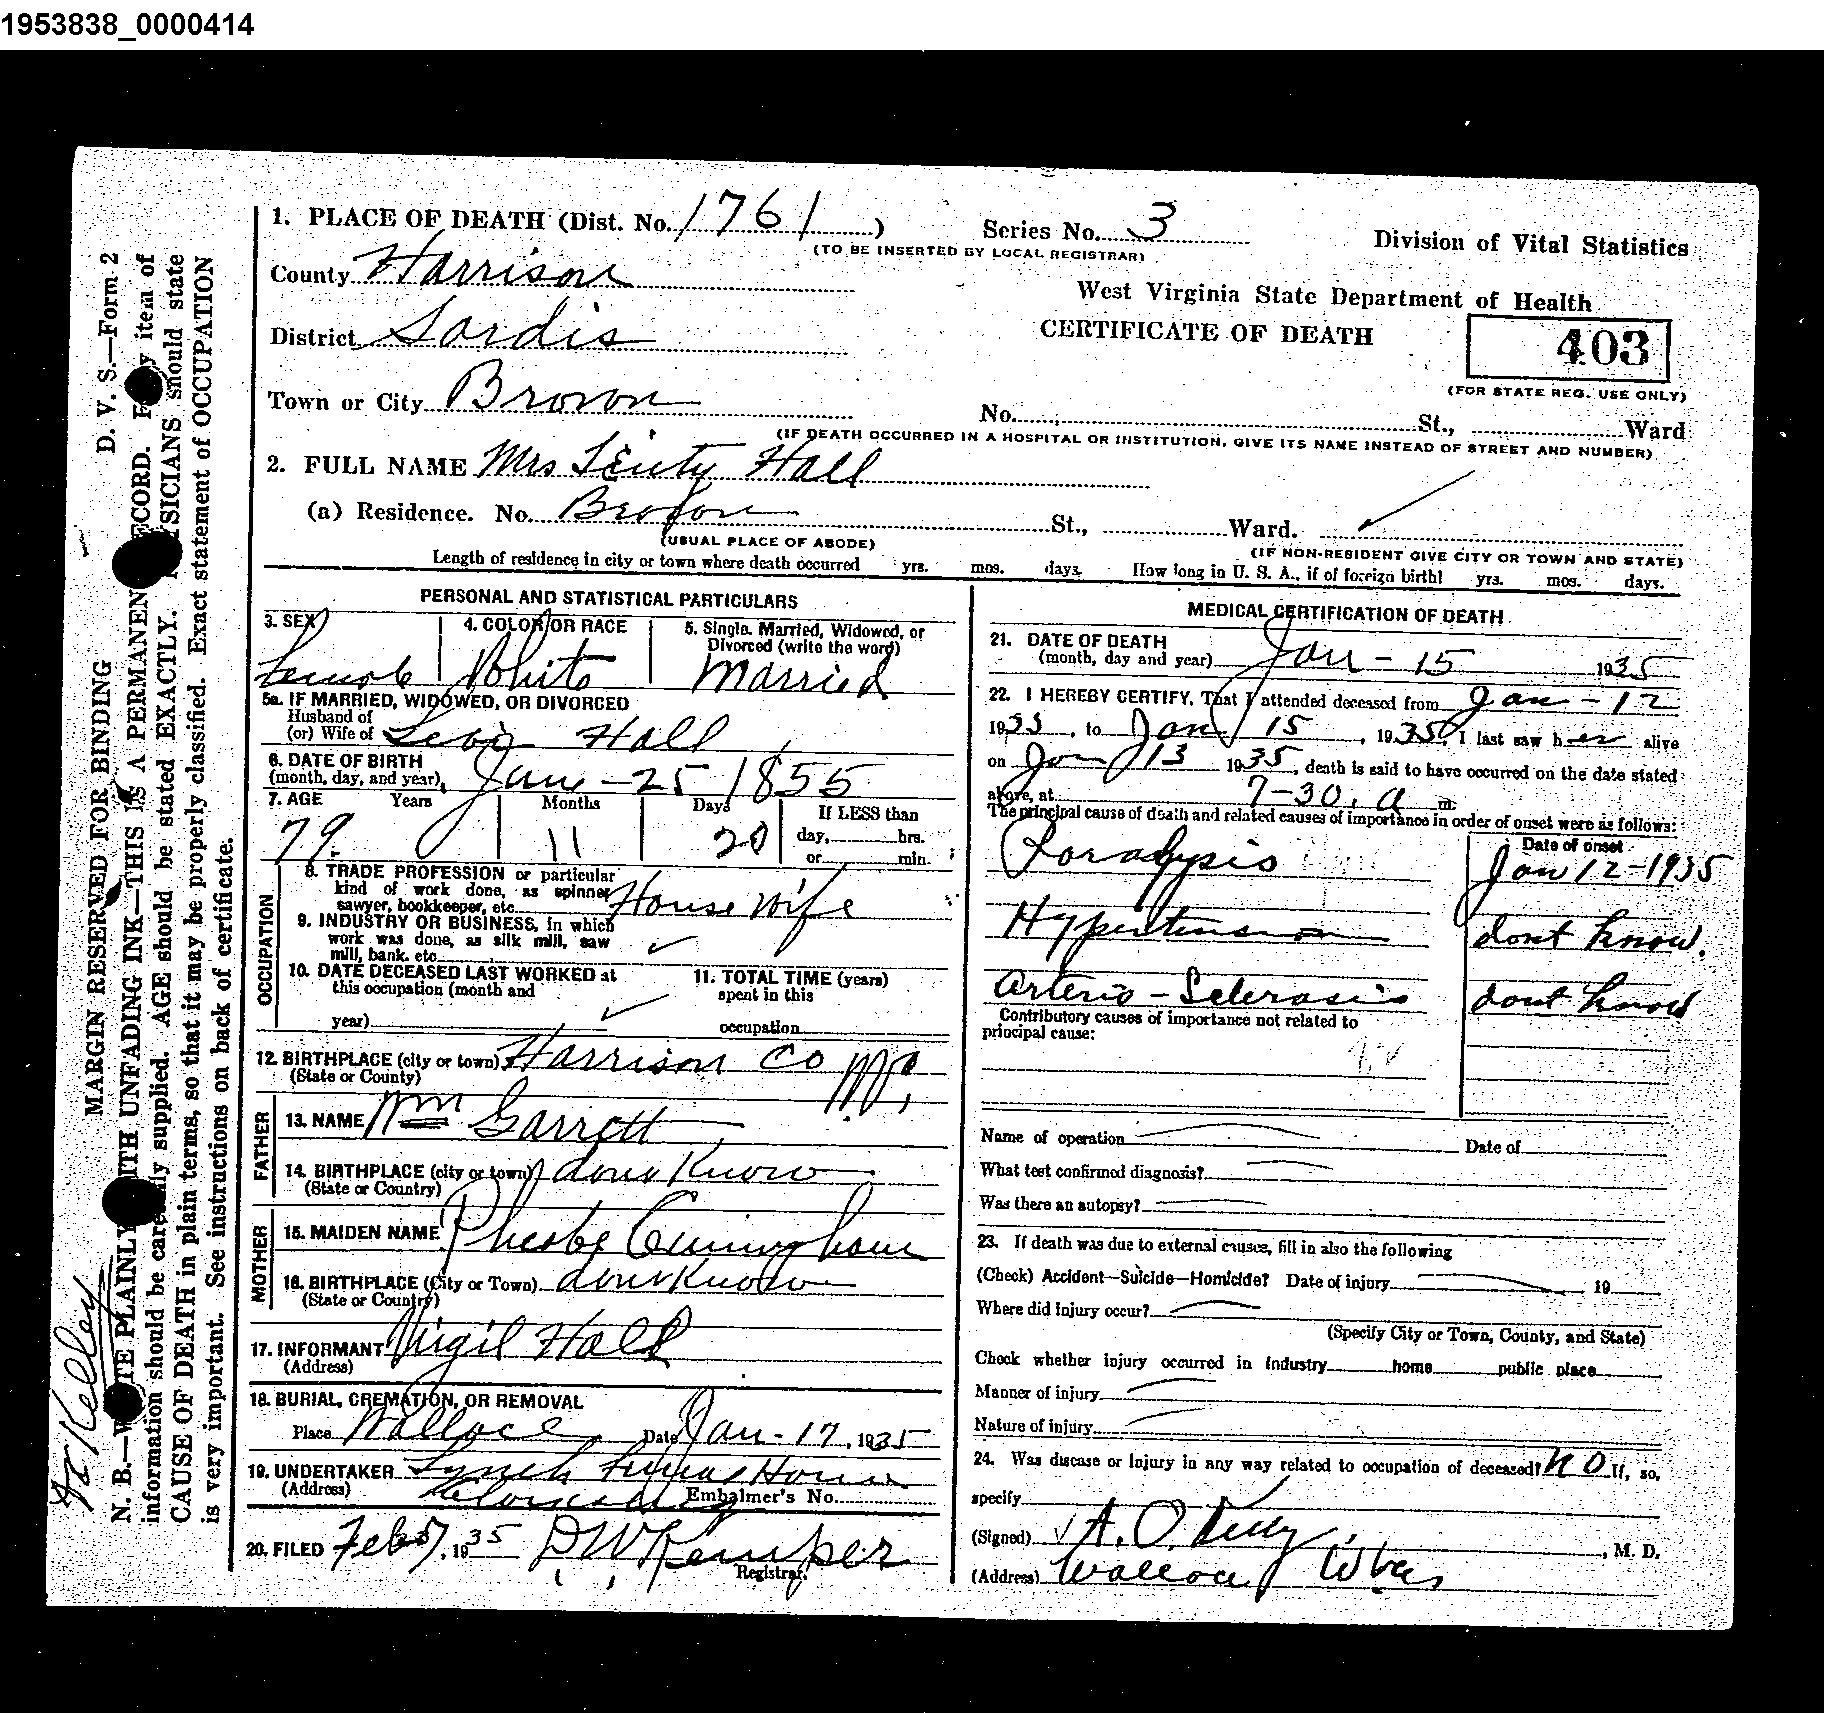 1953838_0000414
1. PLACE OF DEATH (Dist. No. 1761 ) Series No. 3
(TO BE INSERTED BY LOCAL REGISTRAR)
Division of Vital Statistics
County Harrison
West Virginia State Department of Health
District Sardis
CERTIFICATE OF DEATH
403
(FOR STATE REG. USE ONLY)
Town or City Brown
No. St., Ward
(IF DEATH OCCURRED IN A HOSPITAL OR INSTITUTION, GIVE ITS NAME INSTEAD OF STREET AND NUMBER)
2. FULL NAME Mrs Hall
(a) Residence. No. Brown St., Ward.
(USUAL PLACE OF ABODE) (IF NON-RESIDENT GIVE CITY OR TOWN AND STATE)
Length of residence in city or town where death occurred yrs. mos. days. How long in U. S. A., if of foreign birth? yrs. mos. days.
PERSONAL AND STATISTICAL PARTICULARS
3. SEX 4. COLOR OR RACE 5. Single, Married, Widowed, or
Divorced (write the word)
Female White Married
5a. IF MARRIED, WIDOWED, OR DIVORCED
Husband of
(or) Wife of Levi Hall
6. DATE OF BIRTH
(month, day, and year) 25 1855
7. AGE Years Months Days If LESS than
79 11 20 day, hrs.
or min.
OCCUPATION
8. TRADE PROFESSION or particular
kind of work done, as spinner
sawyer, bookkeeper, etc. House wife
9. INDUSTRY OR BUSINESS, in which
work was done, as silk mill, saw
mill, bank, etc.
10. DATE DECEASED LAST WORKED at
this occupation (month and
year)
11. TOTAL TIME (years)
spent in this
occupation
12. BIRTHPLACE (city or town) Harrison Co
(State or County)
FATHER
13. NAME Wm Garrett
14. BIRTHPLACE (city or town) dont Know
(State or Country)
MOTHER
15. MAIDEN NAME Pheobe Cuningham
16. BIRTHPLACE (City or Town) dont Know
(State or Country)
17. INFORMANT Virgil Hall
(Address)
18. BURIAL, CREMATION, OR REMOVAL
Place Wallace Date Jan - 17, 1935
19. UNDERTAKER Lynch Home
(Address) Embalmer's No.
20. FILED Feb 1935 D. W. Kemper
Registrar.
MEDICAL CERTIFICATION OF DEATH
21. DATE OF DEATH
(month, day and year) Jan - 15 1935
22. I HEREBY CERTIFY, That I attended deceased from Jan - 12
1935, to Jan 15, 1935, I last saw her alive
on Jan 13 1935, death is said to have occurred on the date stated
above, at 7-30. a m.
The principal cause of death and related causes of importance in order of onset were as follows:
Date of onset
Paralysis Jan 12-1935
Hypertension dont know.
Arterio-Sclerosis dont know
Contributory causes of importance not related to
principal cause:
Name of operation Date of
What test confirmed diagnosis?
Was there an autopsy?
23. If death was due to external causes, fill in also the following
(Check) Accident—Suicide—Homicide? Date of injury 19
Where did injury occur?
(Specify City or Town, County, and State)
Check whether injury occurred in industry home public place
Manner of injury
Nature of injury
24. Was disease or injury in any way related to occupation of deceased? NO If, so,
specify
(Signed) A. O. Kelly, M. D.
(Address) Wallace W Va
D. V. S.—Form 2
MARGIN RESERVED FOR BINDING
N. B.—WRITE PLAINLY WITH UNFADING INK—THIS IS A PERMANENT RECORD. Every item of
information should be carefully supplied. AGE should be stated EXACTLY. PHYSICIANS should state
CAUSE OF DEATH in plain terms, so that it may be properly classified. Exact statement of OCCUPATION
is very important. See instructions on back of certificate.
Dr Kelley